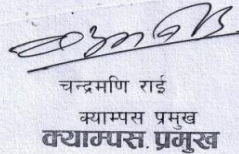 चन्द्रमणि राई
क्याम्पस प्रमुख
क्याम्पस. प्रमुख